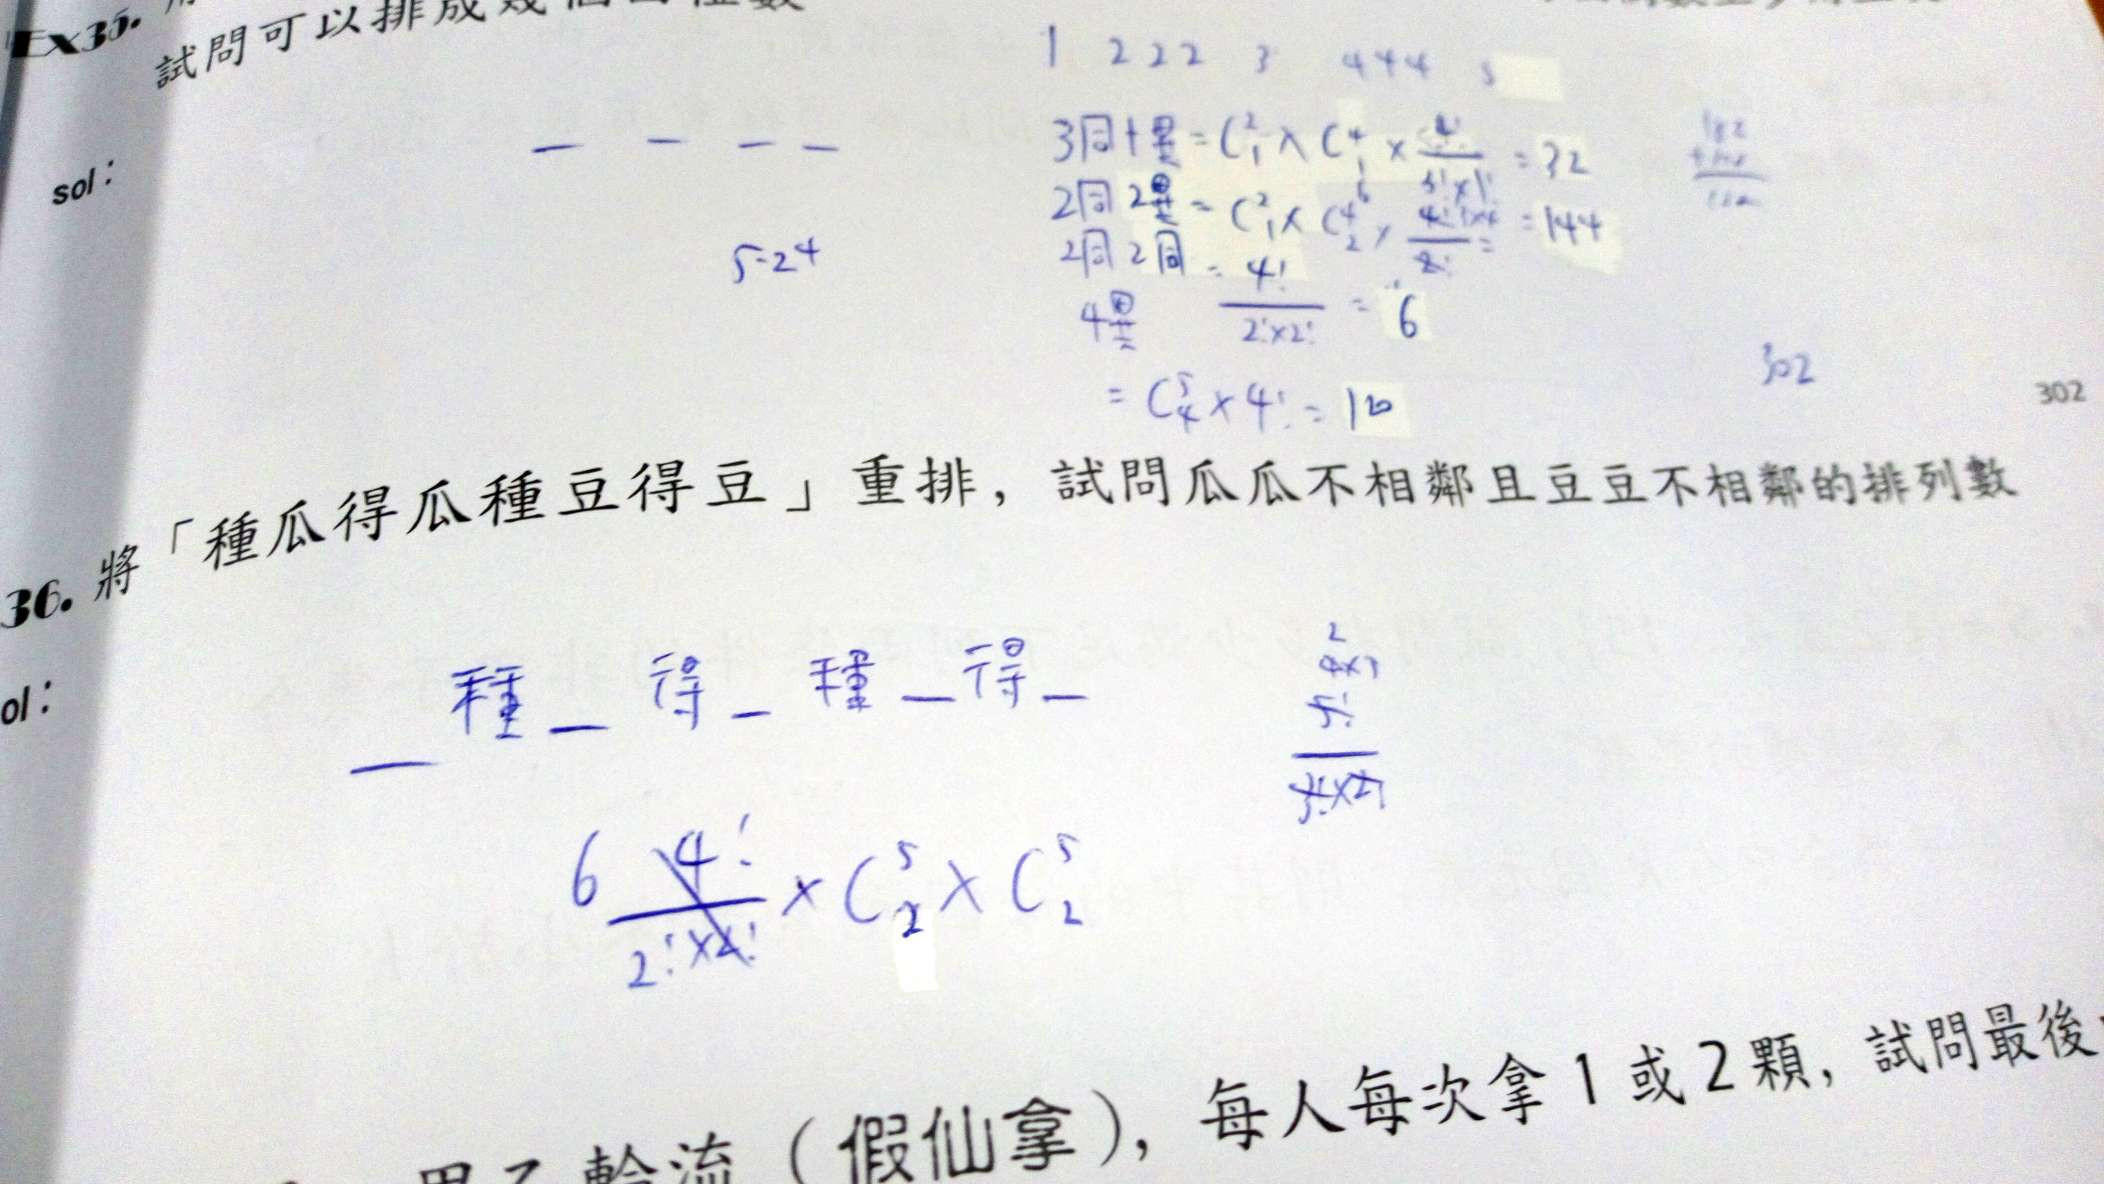 Ex35.
試問可以排成幾個四位數
1 2 2 2 3 4 4 4 5
sol:
3同1異 = C²₁ × C⁴₁ × 4!/3!×1! = 32
2同2異 = C²₁ × C⁴₂ × 4!/2! = 144
5-24
2同2同 = 4!/2!×2! = 6
4異
= C⁵₄ × 4! = 120
302
302
36. 將「種瓜得瓜種豆得豆」重排, 試問瓜瓜不相鄰且豆豆不相鄰的排列數
ol:
_ 種 _ 得 _ 種 _ 得 _
6 4!/2!×2! × C⁵₂ × C⁵₂
甲乙輪流 (假仙拿), 每人每次拿 1 或 2 顆, 試問最後